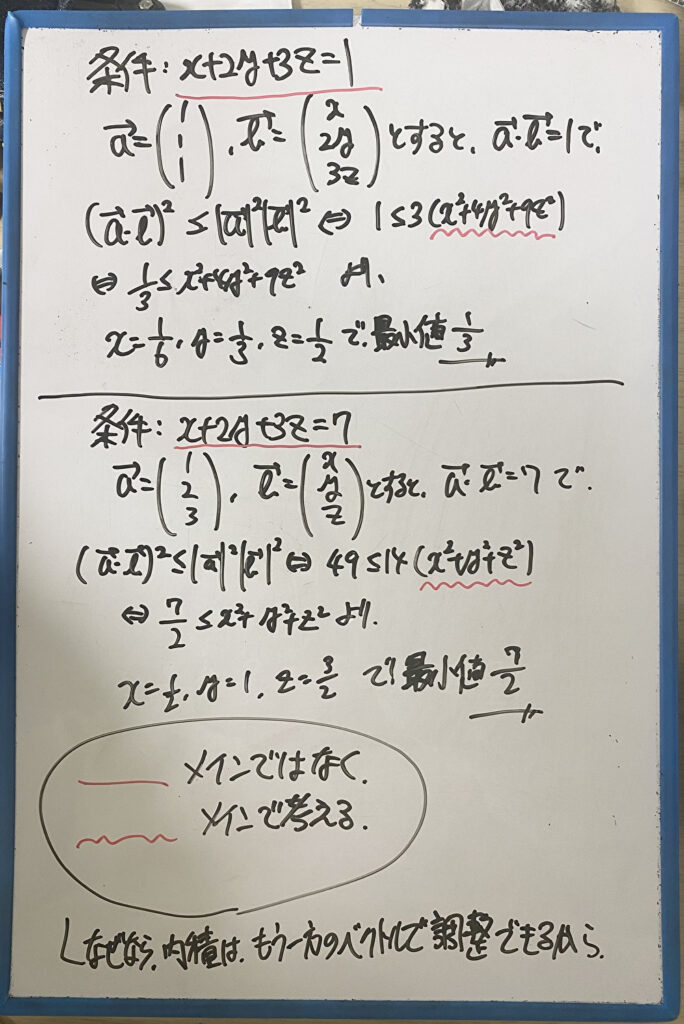 条件: x+2y+3z=1
a→=(1 1 1), b→=(x 2y 3z)とすると、a→・b→=1で、
(a→・b→)² ≤ |a→|²|b→|² ⇔ 1≤3(x²+4y²+9z²)
⇔ 1/3 ≤ x²+4y²+9z² より、
x=1/6, y=1/3, z=1/2 で、最小値 1/3
条件: x+2y+3z=7
a→=(1 2 3), b→=(x y z)とすると、a→・b→=7で、
(a→・b→)² ≤ |a→|²|b→|² ⇔ 49≤14(x²+y²+z²)
⇔ 7/2 ≤ x²+y²+z² より、
x=1/2, y=1, z=3/2 で、最小値 7/2
メインではなく、
メインで考える。
なぜなら、内積は、もう一方のベクトルで調整できるから。